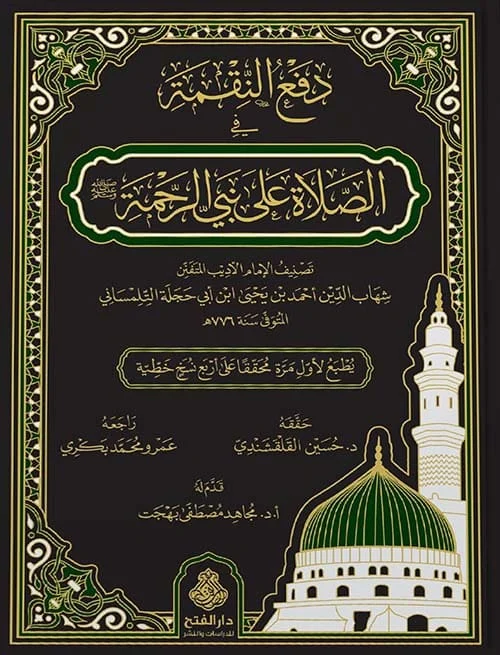 دَفْعُ النِّقْمَةِ
فِي
الصَّلَاةِ عَلَى نَبِيِّ الرَّحْمَةِ ﷺ
تَصْنِيفُ الإِمَامِ الأَدِيبِ المُتَفَنِّنِ
شِهَابِ الدِّينِ أَحْمَدَ بْنِ يَحْيَى ابْنِ أَبِي حَجَلَةَ التِّلِمْسَانِي
المُتَوَفَّى سَنَةَ ٧٧٦هـ
يُطْبَعُ لِأَوَّلِ مَرَّةٍ مُحَقَّقًا عَلَى أَرْبَعِ نُسَخٍ خَطِّيَّة
حَقَّقَهُ
د. حُسَيْن القَلْقَشَنْدِي
رَاجَعَهُ
عَمْرو مُحَمَّد بَكْرِي
قَدَّمَ لَهُ
أ.د. مُجَاهِد مُصْطَفَى بَهْجَت
دار الفتح
للدراسات والنشر